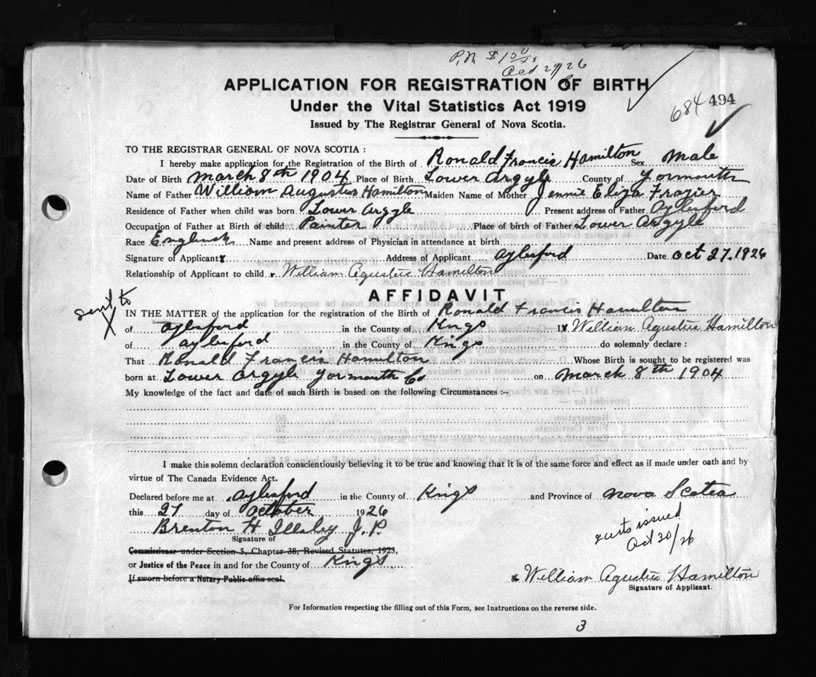 P.N. $1.50
Oct 27/26
APPLICATION FOR REGISTRATION OF BIRTH
Under the Vital Statistics Act 1919
684 494
Issued by The Registrar General of Nova Scotia.
TO THE REGISTRAR GENERAL OF NOVA SCOTIA :
I hereby make application for the Registration of the Birth of Ronald Francis Hamilton Sex Male
Date of Birth March 8th 1904 Place of Birth Lower Argyle County of Yormouth
Name of Father William Augustus Hamilton Maiden Name of Mother Jennie Eliza Frazier
Residence of Father when child was born Lower Argyle Present address of Father Aylesford
Occupation of Father at Birth of child Painter Place of birth of Father Lower Argyle
Race English Name and present address of Physician in attendance at birth
Signature of Applicant x Address of Applicant Aylesford Date Oct 27. 1926
Relationship of Applicant to child William Agustus Hamilton
AFFIDAVIT
sent to
IN THE MATTER of the application for the registration of the Birth of Ronald Francis Hamilton
of Aylesford in the County of Kings I, William Agustus Hamilton
of Aylesford in the County of Kings do solemnly declare :
That Ronald Francis Hamilton Whose Birth is sought to be registered was
born at Lower Argyle Yormouth Co on March 8th 1904
My knowledge of the fact and date of such Birth is based on the following Circumstances :-
I make this solemn declaration conscientiously believing it to be true and knowing that it is of the same force and effect as if made under oath and by
virtue of The Canada Evidence Act.
Declared before me at Aylesford in the County of Kings and Province of Nova Scotea
this 27 day of October 1926
Brenton H Illsley J.P.
Signature of
Commissioner under Section 5, Chapter 38, Revised Statutes, 1923.
or Justice of the Peace in and for the County of Kings
If sworn before a Notary Public affix seal.
issued
Oct 30/26
x William Agustus Hamilton
Signature of Applicant.
For Information respecting the filling out of this Form, see Instructions on the reverse side.
3